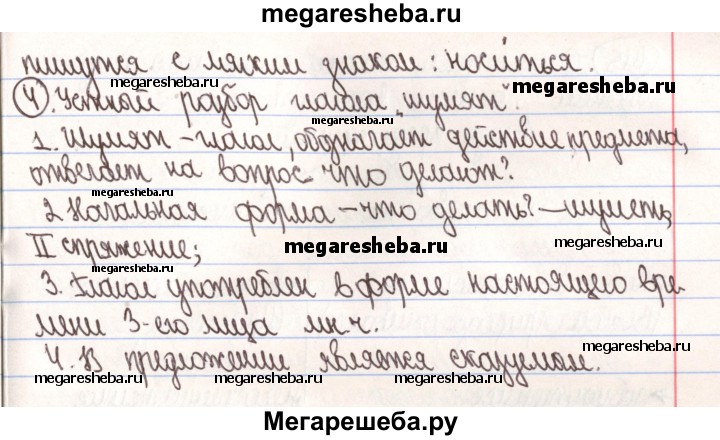 megaresheba.ru
пишутся с мягким знаком: носиться.
megaresheba.ru megaresheba.ru
④. Устный разбор глагола „шумят".
megaresheba.ru
1. Шумят – глагол, обозначает действие предмета,
отвечает на вопрос что делают?
megaresheba.ru megaresheba.ru
2. Начальная форма – что делать? – шуметь,
megaresheba.ru megaresheba.ru
II спряжение;
3. Глагол употреблен в форме настоящего вре-
мени 3-его лица мн.ч.
4. В предложении является сказуемым.
megaresheba.ru megaresheba.ru megaresheba.ru megaresheba.ru
Мегарешеба.ру